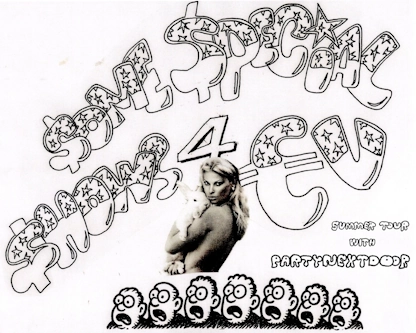 $OME $PECIAL
$HOW$ 4 €U
SUMMER TOUR
WITH
PARTYNEXTDOOR